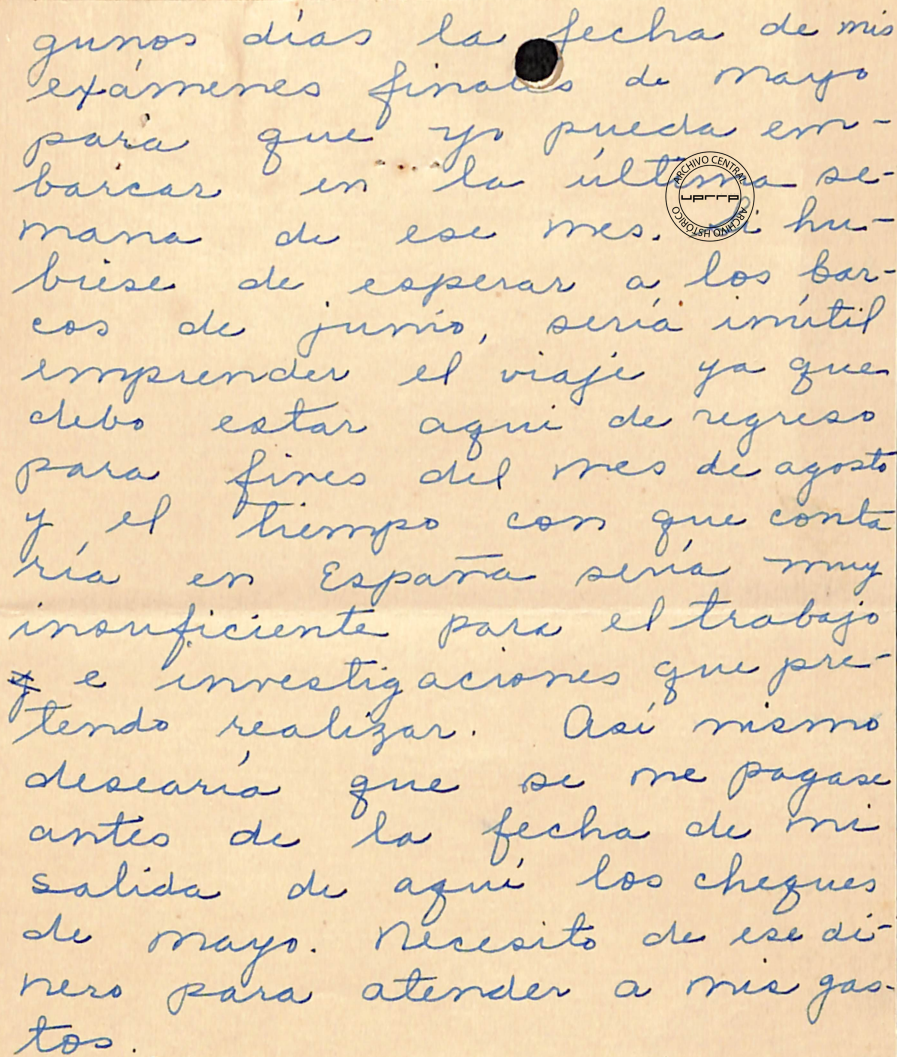 gunos días la fecha de mis
exámenes finales de mayo
para que yo pueda em-
barcar en la última se-
mana de ese mes. Si hu-
biese de esperar a los bar-
cos de junio, sería inútil
emprender el viaje ya que
debo estar aquí de regreso
para fines del mes de agosto
y el tiempo con que conta
ría en España sería muy
insuficiente para el trabajo
y e investigaciones que pre-
tendo realizar. Así mismo
desearía que se me pagase
antes de la fecha de mi
salida de aquí los cheques
de mayo. Necesito de ese di-
nero para atender a mis gas-
tos.
ARCHIVO CENTRAL
uprrp
ARCHIVO HISTÓRICO